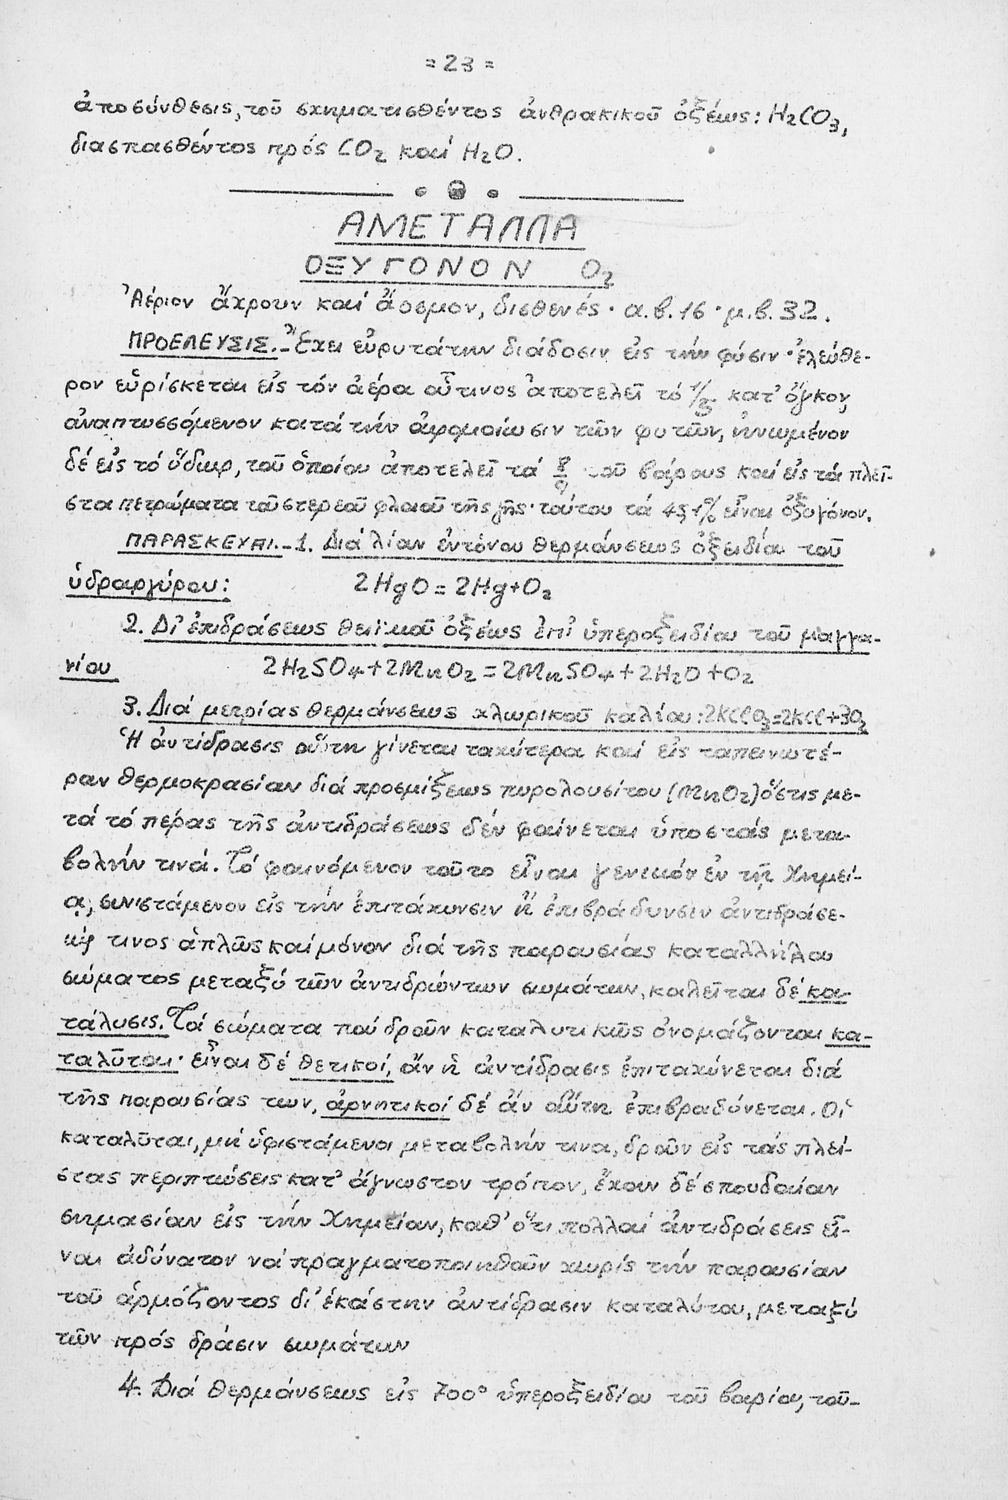 = 23 =
ἀποσύνθεσις, τοῦ σχηματισθέντος ἀνθρακικοῦ ὀξέως: H₂CO₃,
διασπασθέντος πρός CO₂ καί H₂O.
ΑΜΕΤΑΛΛΑ
ΟΞΥΓΟΝΟΝ O₂
Ἀέριον ἄχρουν καί ἄοσμον, δισθενές· α.β. 16 · μ.β. 32.
ΠΡΟΕΛΕΥΣΙΣ.- Ἔχει εὐρυτάτην διάδοσιν εἰς τήν φύσιν· ἐλεύθε-
ρον εὑρίσκεται εἰς τόν ἀέρα οὗτινος ἀποτελεῖ τό 1/5 κατ' ὄγκον,
ἀναπτυσσόμενον κατά τήν ἀφομοίωσιν τῶν φυτῶν, ἡνωμένον
δέ εἰς τό ὕδωρ, τοῦ ὁποίου ἀποτελεῖ τά 8/9 τοῦ βάρους καί εἰς τά πλεῖ-
στα πετρώματα τοῦ στερεοῦ φλοιοῦ τῆς γῆς· τούτου τά % εἶναι ὀξυγόνον.
ΠΑΡΑΣΚΕΥΑΙ.- 1. Διά λίαν ἐντόνου θερμάνσεως ὀξειδίου τοῦ
ὑδραργύρου: 2HgO = 2Hg + O₂
2. Δι' ἐπιδράσεως θειϊκοῦ ὀξέως ἐπί ὑπεροξειδίου τοῦ μαγγα-
νίου 2H₂SO₄ + 2MnO₂ = 2MnSO₄ + 2H₂O + O₂
3. Διά μετρίας θερμάνσεως χλωρικοῦ καλίου: 2KClO₃ = 2KCl + 3O₂
Ἡ ἀντίδρασις αὕτη γίνεται ταχύτερα καί εἰς ταπεινωτέ-
ραν θερμοκρασίαν διά προσμίξεως πυρολουσίτου (MnO₂) ὅστις με-
τά τό πέρας τῆς ἀντιδράσεως δέν φαίνεται ὑποστάς μετα-
βολήν τινά. Τό φαινόμενον τοῦτο εἶναι γενικόν ἐν τῇ Χημεί-
ᾳ, συνιστάμενον εἰς τήν ἐπιτάχυνσιν ἤ ἐπιβράδυνσιν ἀντιδράσε-
ώς τινος ἁπλῶς καί μόνον διά τῆς παρουσίας καταλλήλου
σώματος μεταξύ τῶν ἀντιδρώντων σωμάτων, καλεῖται δέ κα-
τάλυσις. Τά σώματα πού δροῦν καταλυτικῶς ὀνομάζονται κα-
ταλῦται· εἶναι δέ θετικοί, ἄν ἡ ἀντίδρασις ἐπιταχύνεται διά
τῆς παρουσίας των, ἀρνητικοί δέ ἄν αὕτη ἐπιβραδύνεται. Οἱ
καταλῦται, μή ὑφιστάμενοι μεταβολήν τινα, δροῦν εἰς τάς πλεί-
στας περιπτώσεις κατ' ἄγνωστον τρόπον, ἔχουν δέ σπουδαίαν
σημασίαν εἰς τήν Χημείαν, καθ' ὅτι πολλαί ἀντιδράσεις εἶ-
ναι ἀδύνατον νά πραγματοποιηθοῦν χωρίς τήν παρουσίαν
τοῦ ἁρμόζοντος δι' ἑκάστην ἀντίδρασιν καταλύτου, μεταξύ
τῶν πρός δράσιν σωμάτων
4. Διά θερμάνσεως εἰς 700° ὑπεροξειδίου τοῦ βαρίου, τοῦ-